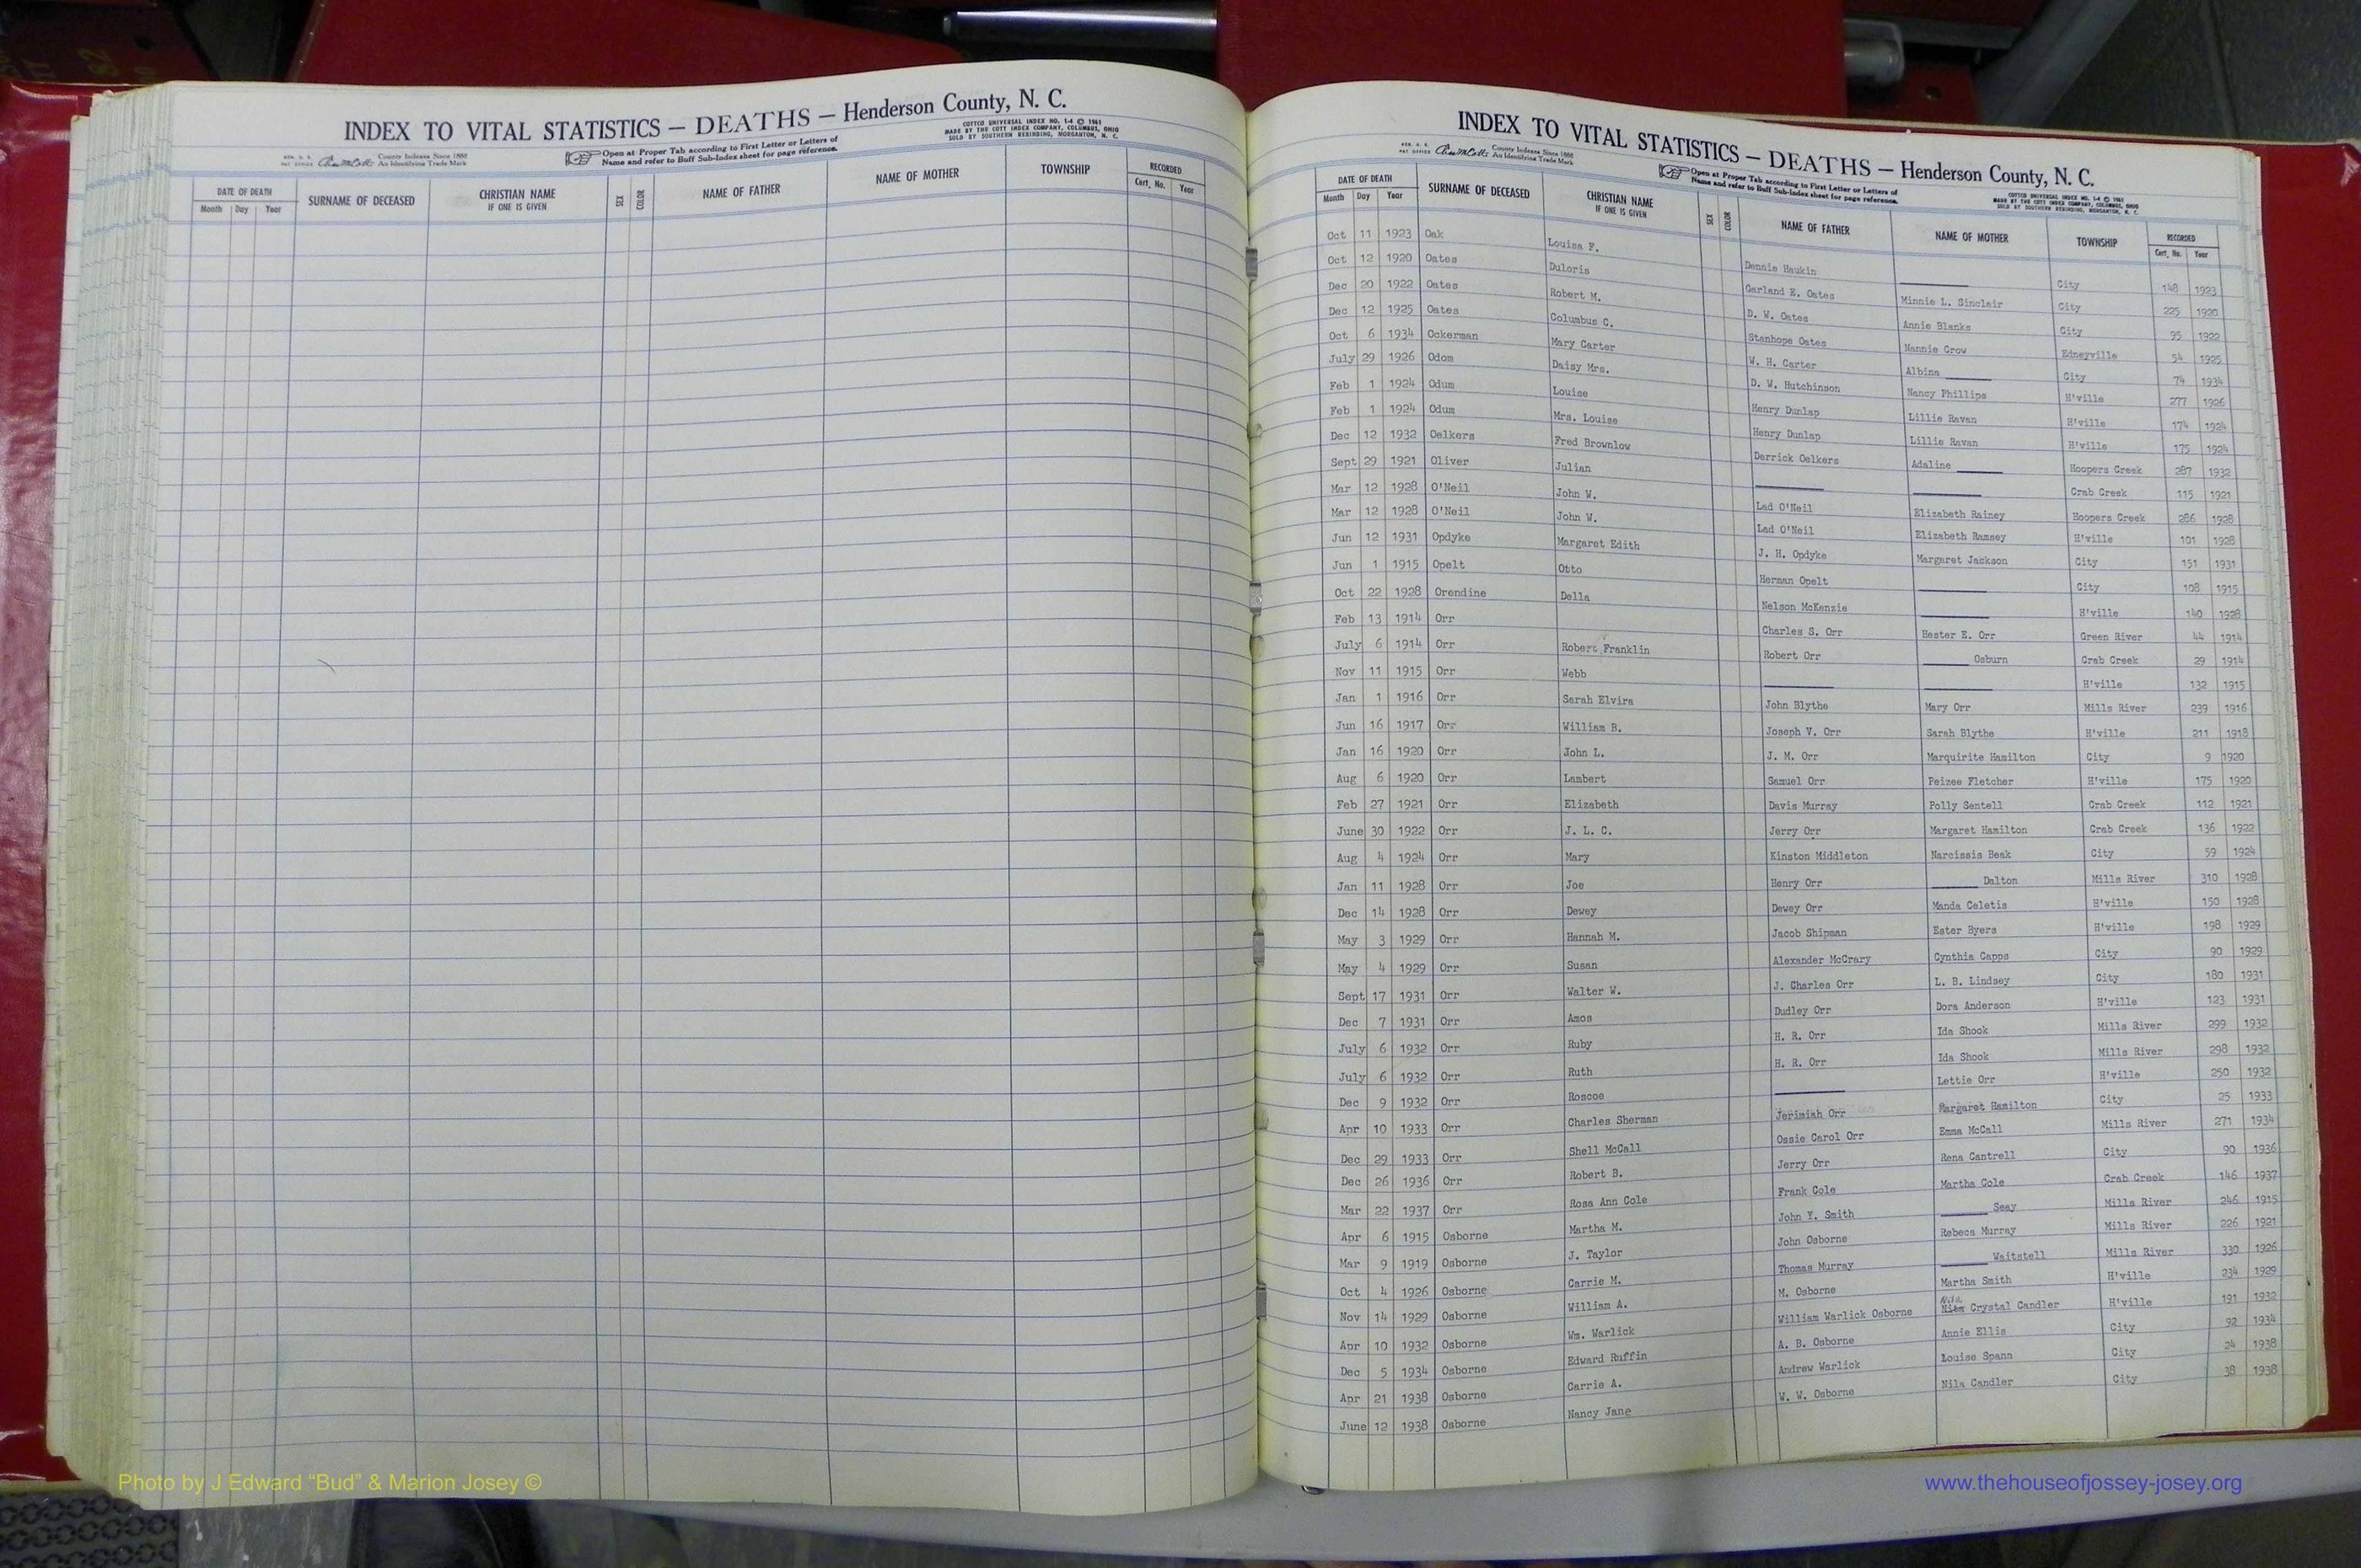 INDEX TO VITAL STATISTICS — DEATHS — Henderson County, N. C.
County Indexes Since 1888
An Identifying Trade Mark
Open at Proper Tab according to First Letter or Letters of
Name and refer to Buff Sub-Index sheet for page reference.
COTTCO UNIVERSAL INDEX NO. 1-4 © 1961
MADE BY THE COTT INDEX COMPANY, COLUMBUS, OHIO
SOLD BY SOUTHERN REBINDING, MORGANTON, N. C.
DATE OF DEATH SURNAME OF DECEASED CHRISTIAN NAME IF ONE IS GIVEN SEX COLOR NAME OF FATHER NAME OF MOTHER TOWNSHIP RECORDED
Month Day Year Cert. No. Year
INDEX TO VITAL STATISTICS — DEATHS — Henderson County, N. C.
County Indexes Since 1888
An Identifying Trade Mark
Open at Proper Tab according to First Letter or Letters of
Name and refer to Buff Sub-Index sheet for page reference.
COTTCO UNIVERSAL INDEX NO. 1-4 © 1961
MADE BY THE COTT INDEX COMPANY, COLUMBUS, OHIO
SOLD BY SOUTHERN REBINDING, MORGANTON, N. C.
DATE OF DEATH SURNAME OF DECEASED CHRISTIAN NAME IF ONE IS GIVEN SEX COLOR NAME OF FATHER NAME OF MOTHER TOWNSHIP RECORDED
Month Day Year Cert. No. Year
Oct 11 1923 Oak Louisa F. Dennie Haukin City 148 1923
Oct 12 1920 Oates Duloris Garland E. Oates Minnie L. Sinclair City 225 1920
Dec 20 1922 Oates Robert M. D. W. Oates Annie Blanks City 95 1922
Dec 12 1925 Oates Columbus C. Stanhope Oates Nannie Grow Edneyville 54 1925
Oct 6 1934 Ockerman Mary Carter W. H. Carter Albina City 74 1934
July 29 1926 Odom Daisy Mrs. D. W. Hutchinson Nancy Phillips H'ville 277 1926
Feb 1 1924 Odum Louise Henry Dunlap Lillie Ravan H'ville 174 1924
Feb 1 1924 Odum Mrs. Louise Henry Dunlap Lillie Ravan H'ville 175 1924
Dec 12 1932 Oelkers Fred Brownlow Derrick Oelkers Adaline Hoopers Creek 287 1932
Sept 29 1921 Oliver Julian Crab Creek 115 1921
Mar 12 1928 O'Neil John W. Lad O'Neil Elizabeth Rainey Hoopers Creek 286 1928
Mar 12 1928 O'Neil John W. Lad O'Neil Elizabeth Ramsey H'ville 101 1928
Jun 12 1931 Opdyke Margaret Edith J. H. Opdyke Margaret Jackson City 151 1931
Jun 1 1915 Opelt Otto Herman Opelt City 108 1915
Oct 22 1928 Orendine Della Nelson McKenzie H'ville 140 1928
Feb 13 1914 Orr Charles S. Orr Hester E. Orr Green River 44 1914
July 6 1914 Orr Robert Franklin Robert Orr Osburn Crab Creek 29 1914
Nov 11 1915 Orr Webb H'ville 132 1915
Jan 1 1916 Orr Sarah Elvira John Blythe Mary Orr Mills River 239 1916
Jun 16 1917 Orr William B. Joseph V. Orr Sarah Blythe H'ville 211 1918
Jan 16 1920 Orr John L. J. M. Orr Marquirite Hamilton City 9 1920
Aug 6 1920 Orr Lambert Samuel Orr Peizee Fletcher H'ville 175 1920
Feb 27 1921 Orr Elizabeth Davis Murray Polly Sentell Crab Creek 112 1921
June 30 1922 Orr J. L. C. Jerry Orr Margaret Hamilton Crab Creek 136 1922
Aug 4 1924 Orr Mary Kinston Middleton Narcissis Beak City 59 1924
Jan 11 1928 Orr Joe Henry Orr Dalton Mills River 310 1928
Dec 14 1928 Orr Dewey Dewey Orr Manda Celetis H'ville 150 1928
May 3 1929 Orr Hannah M. Jacob Shipman Ester Byers H'ville 198 1929
May 4 1929 Orr Susan Alexander McCrary Cynthia Capps City 90 1929
Sept 17 1931 Orr Walter W. J. Charles Orr L. B. Lindsey City 180 1931
Dec 7 1931 Orr Amos Dudley Orr Dora Anderson H'ville 123 1931
July 6 1932 Orr Ruby H. R. Orr Ida Shook Mills River 299 1932
July 6 1932 Orr Ruth H. R. Orr Ida Shook Mills River 298 1932
Dec 9 1932 Orr Roscoe Lettie Orr H'ville 250 1932
Apr 10 1933 Orr Charles Sherman Jerimiah Orr Margaret Hamilton City 25 1933
Dec 29 1933 Orr Shell McCall Ossie Carol Orr Emma McCall Mills River 271 1934
Dec 26 1936 Orr Robert B. Jerry Orr Rena Cantrell City 90 1936
Mar 22 1937 Orr Rosa Ann Cole Frank Cole Martha Cole Crab Creek 146 1937
Apr 6 1915 Osborne Martha M. John Y. Smith Seay Mills River 246 1915
Mar 9 1919 Osborne J. Taylor John Osborne Rebeca Murray Mills River 226 1921
Oct 4 1926 Osborne Carrie M. Thomas Murray Waitstell Mills River 330 1926
Nov 14 1929 Osborne William A. M. Osborne Martha Smith H'ville 234 1929
Apr 10 1932 Osborne Wm. Warlick William Warlick Osborne Nila Crystal Candler H'ville 191 1932
Dec 5 1934 Osborne Edward Ruffin A. B. Osborne Annie Ellis City 92 1934
Apr 21 1938 Osborne Carrie A. Andrew Warlick Louise Spann City 24 1938
June 12 1938 Osborne Nancy Jane W. W. Osborne Nila Candler City 38 1938
Photo by J Edward “Bud” & Marion Josey ©
www.thehouseofjossey-josey.org